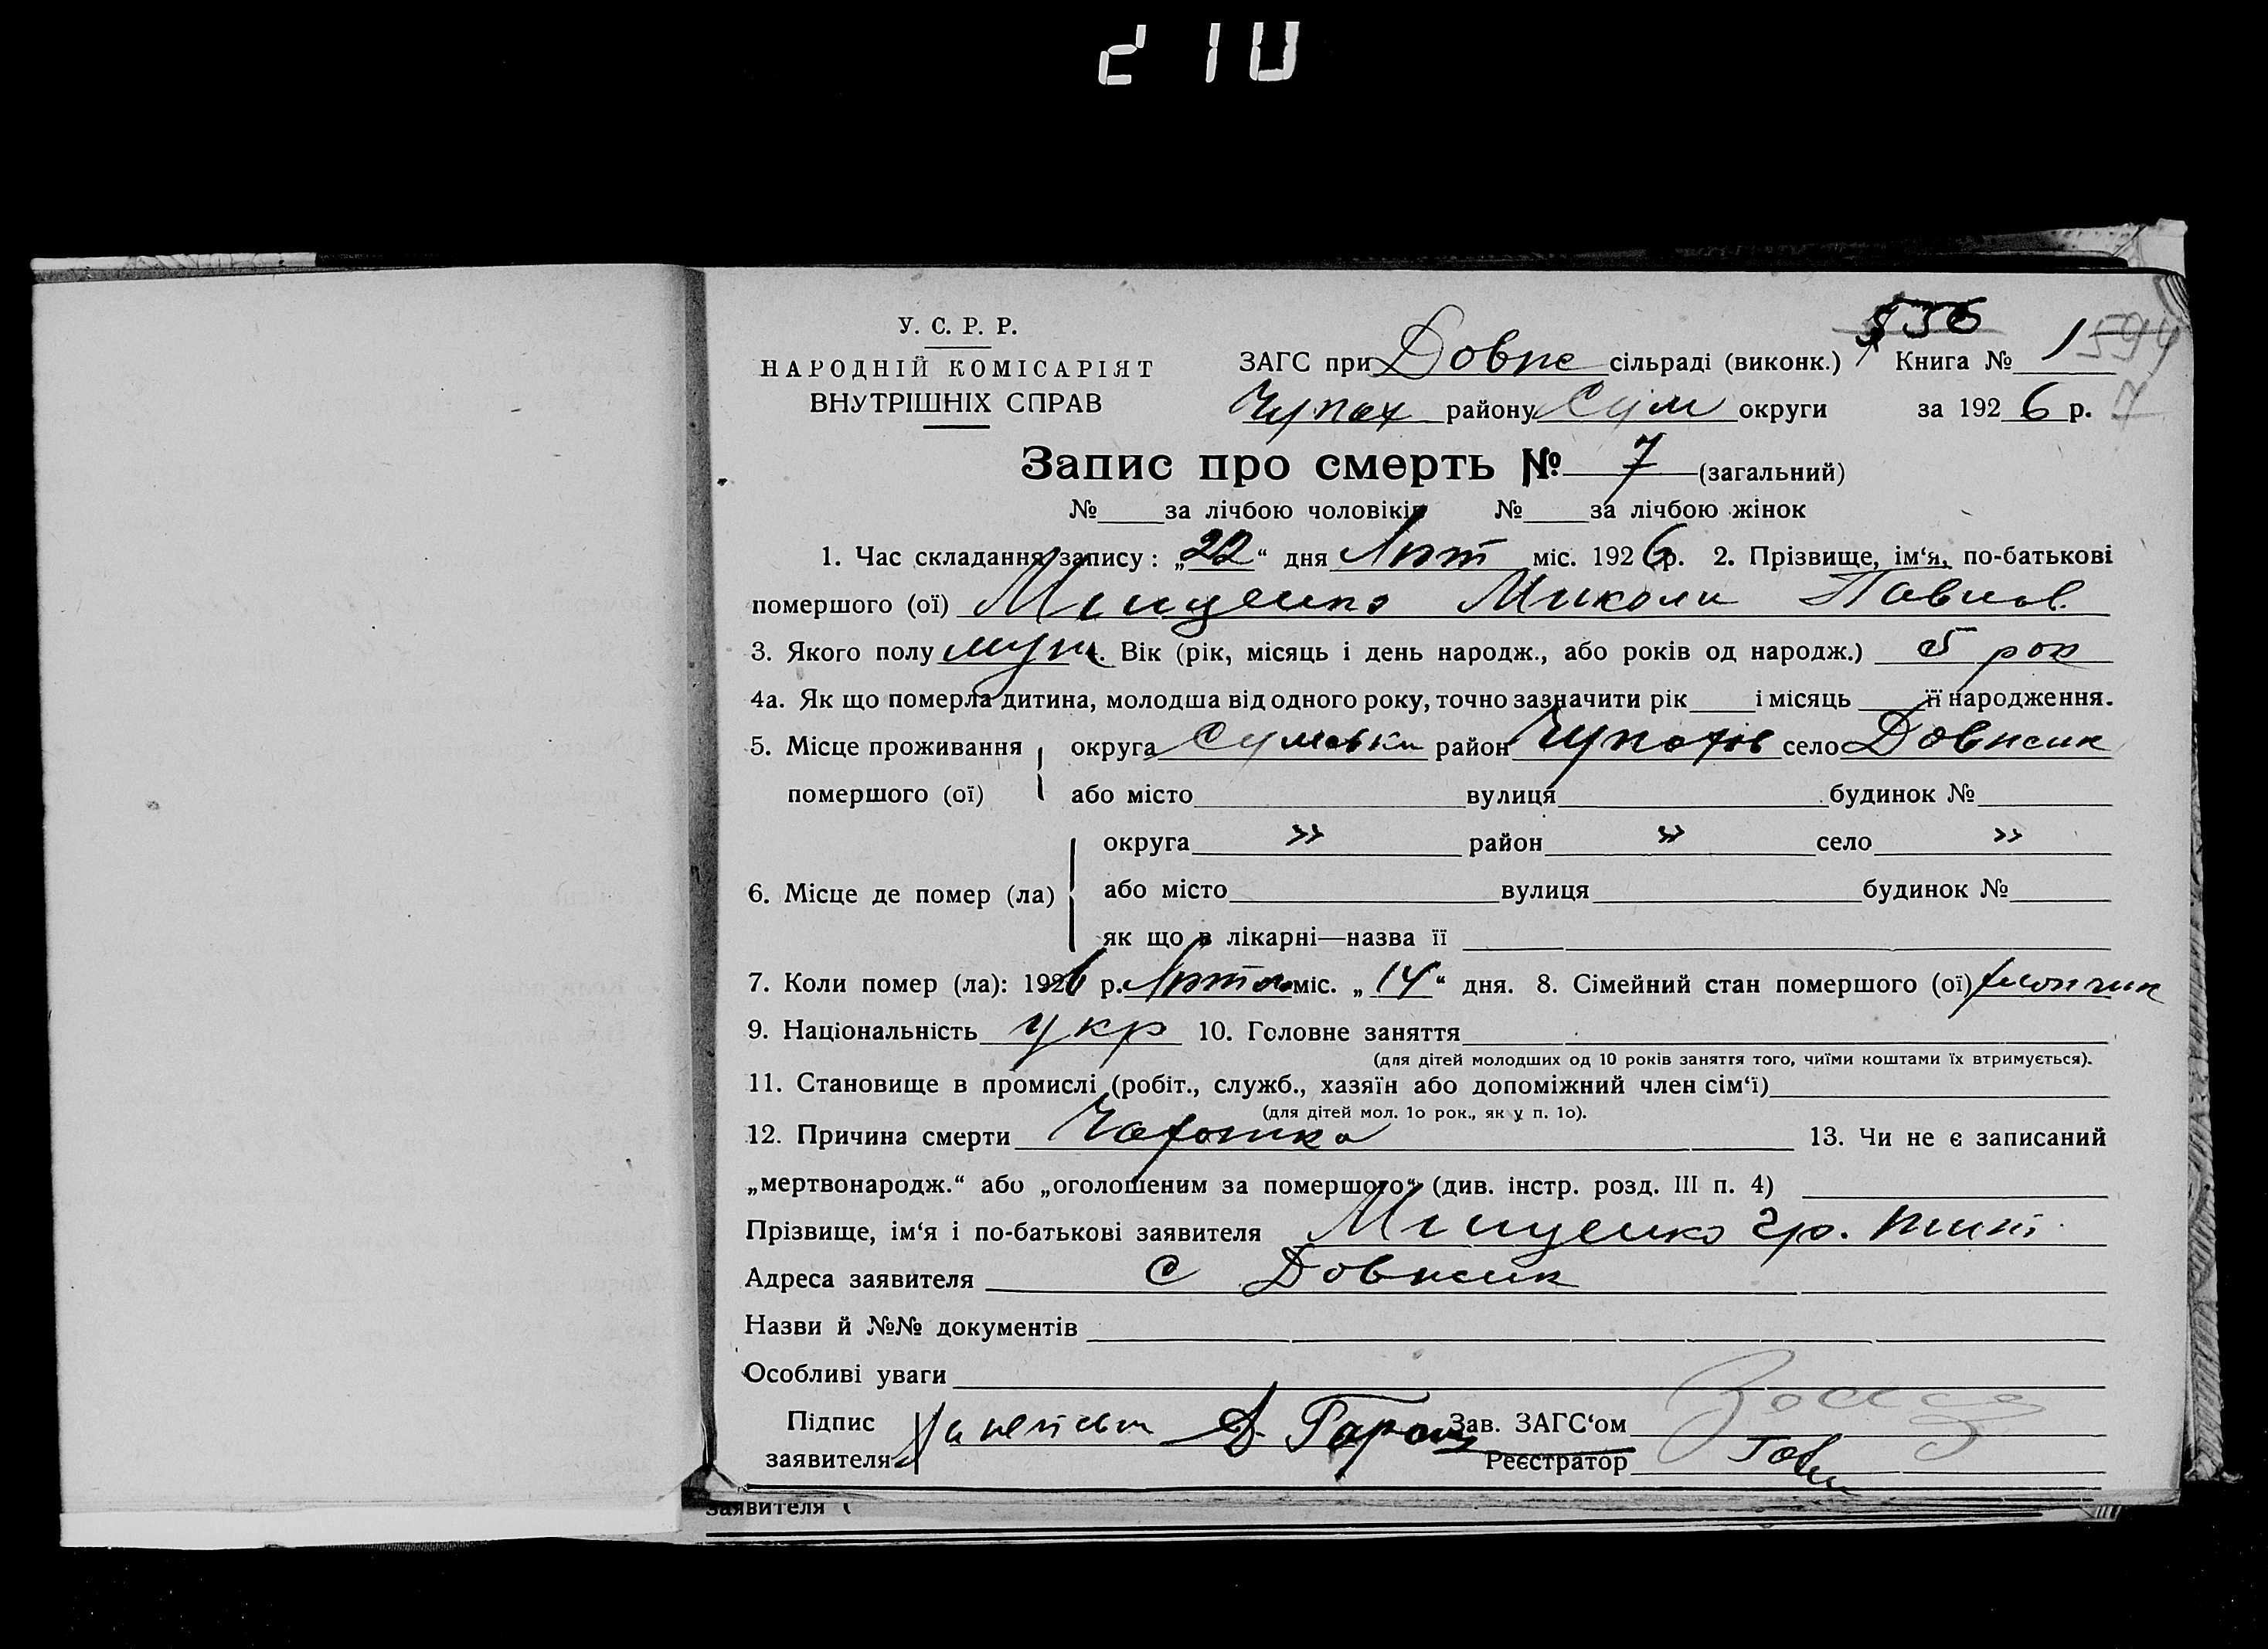 210
У. С. Р. Р.
НАРОДНІЙ КОМІСАРІЯТ
ВНУТРІШНІХ СПРАВ
536
594
ЗАГС при Довже сільраді (виконк.) Книга № 1
Чупах району Сум округи за 1926 р. 7
Запис про смерть № 7 (загальний)
№ за лічбою чоловіків № за лічбою жінок
1. Час складання запису: „22“ дня Лют міс. 1926 р. 2. Прізвище, ім‘я, по-батькові
помершого (ої) Мищенко Миколи Павлов.
3. Якого полу муж. Вік (рік, місяць і день народж., або років од народж.) 5 рок
4а. Як що померла дитина, молодша від одного року, точно зазначити рік і місяць її народження.
5. Місце проживання округа Сумськи район Чупахів село Довжик
помершого (ої) або місто вулиця будинок №
округа » район » село »
6. Місце де помер (ла) або місто вулиця будинок №
як що в лікарні—назва її
7. Коли помер (ла): 1926 р. Лютого міс. „14“ дня. 8. Сімейний стан помершого (ої) хлопчик
9. Національність укр 10. Головне заняття
(для дітей молодших од 10 років заняття того, чиїми коштами їх втримується).
11. Становище в промислі (робіт., служб., хазяїн або допоміжний член сім‘ї)
(для дітей мол. 1о рок., як у п. 1о).
12. Причина смерти Чахотка 13. Чи не є записаний
„мертвонародж.“ або „оголошеним за помершого“ (див. інстр. розд. III п. 4)
Прізвище, ім‘я і по-батькові заявителя Мищенко Гр.
Адреса заявителя с Довжик
Назви й №№ документів
Особливі уваги
Підпис
заявителя
Зав. ЗАГС‘ом
Реєстратор
заявителя (